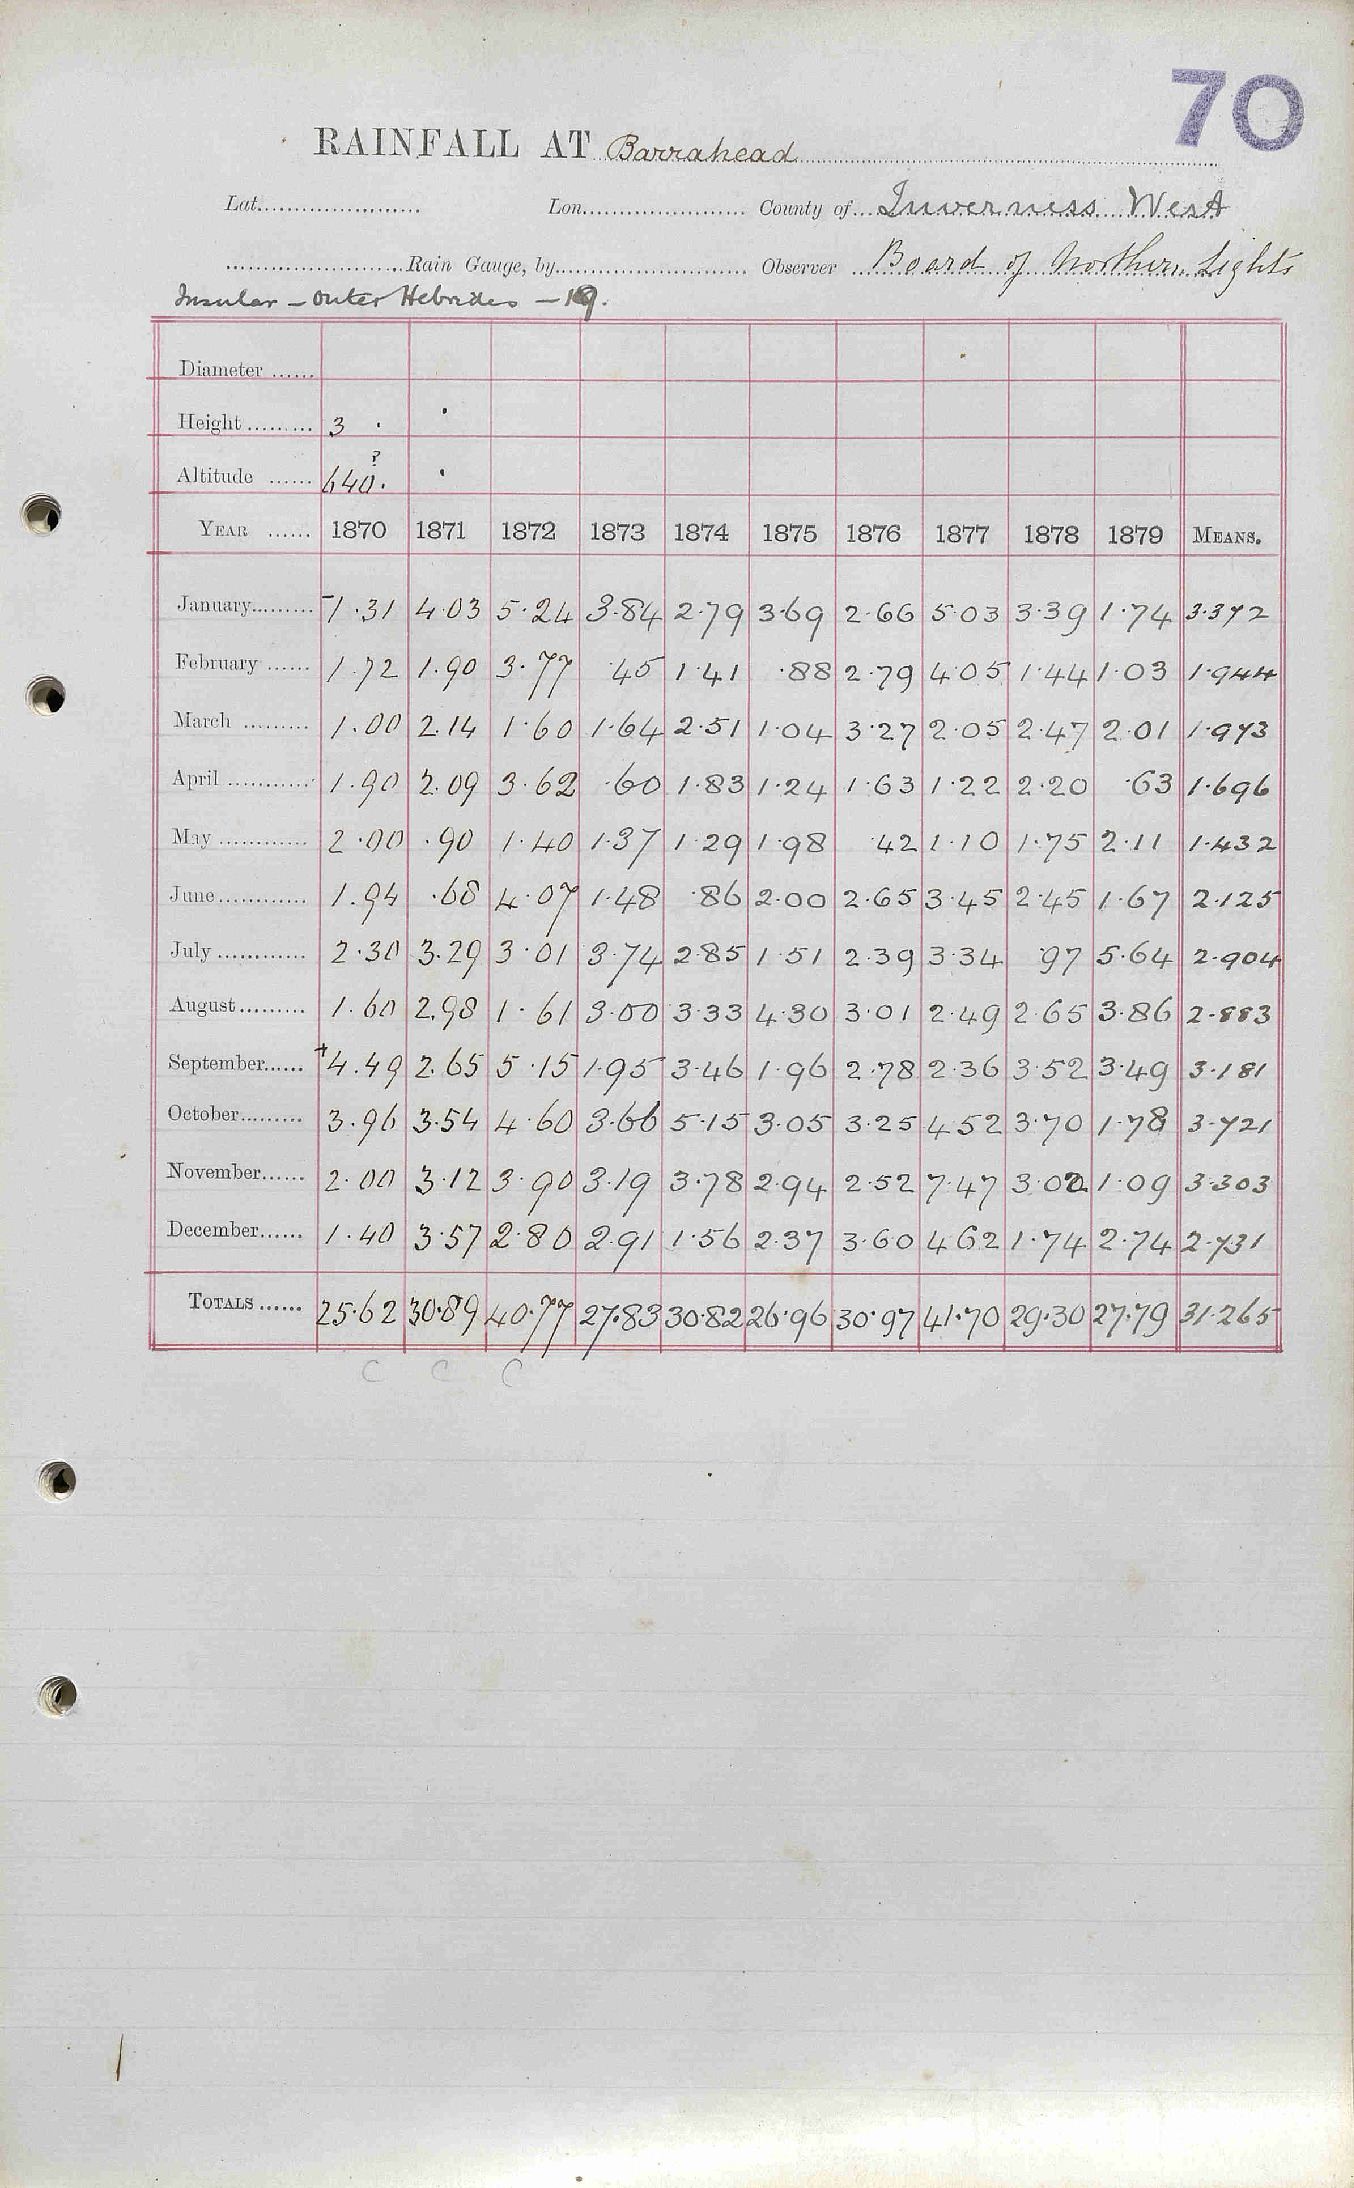 70
RAINFALL AT Barrahead
Lat. Lon. County of Inverness West
Rain Gauge, by Observer Board of Northern Lights
Insular - Outer Hebrides -
Diameter
Height 3
Altitude 640. ?
YEAR 1870 1871 1872 1873 1874 1875 1876 1877 1878 1879 MEANS.
January -1.31 4.03 5.24 3.84 2.79 3.69 2.66 5.03 3.39 1.74 3.372
February 1.72 1.90 3.77 .45 1.41 .88 2.79 4.05 1.44 1.03 1.944
March 1.00 2.14 1.60 1.64 2.51 1.04 3.27 2.05 2.47 2.01 1.973
April 1.90 2.09 3.62 .60 1.83 1.24 1.63 1.22 2.20 .63 1.696
May 2.00 .90 1.40 1.37 1.29 1.98 .42 1.10 1.75 2.11 1.432
June 1.94 .68 4.07 1.48 .86 2.00 2.65 3.45 2.45 1.67 2.125
July 2.30 3.29 3.01 3.74 2.85 1.51 2.39 3.34 .97 5.64 2.904
August 1.60 2.98 1.61 3.00 3.33 4.30 3.01 2.49 2.65 3.86 2.883
September +4.49 2.65 5.15 1.95 3.46 1.96 2.78 2.36 3.52 3.49 3.181
October 3.96 3.54 4.60 3.66 5.15 3.05 3.25 4.52 3.70 1.78 3.721
November 2.00 3.12 3.90 3.19 3.78 2.94 2.52 7.47 3.02 1.09 3.303
December 1.40 3.57 2.80 2.91 1.56 2.37 3.60 4.62 1.74 2.74 2.731
TOTALS 25.62 30.89 40.77 27.83 30.82 26.96 30.97 41.70 29.30 27.79 31.265
C C C